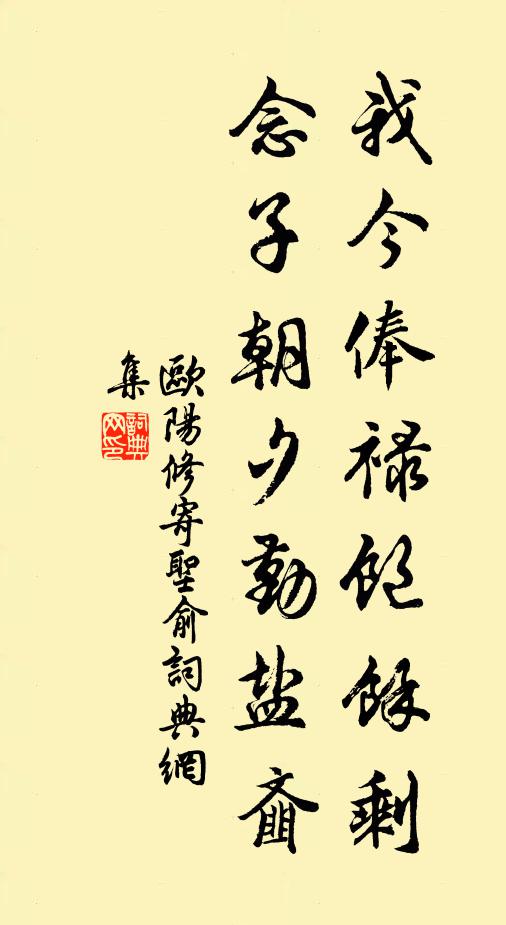 我今俸禄饱餘剩
念子朝夕勤盐齑
歐陽修寄聖俞詞典網
集
詞典网印